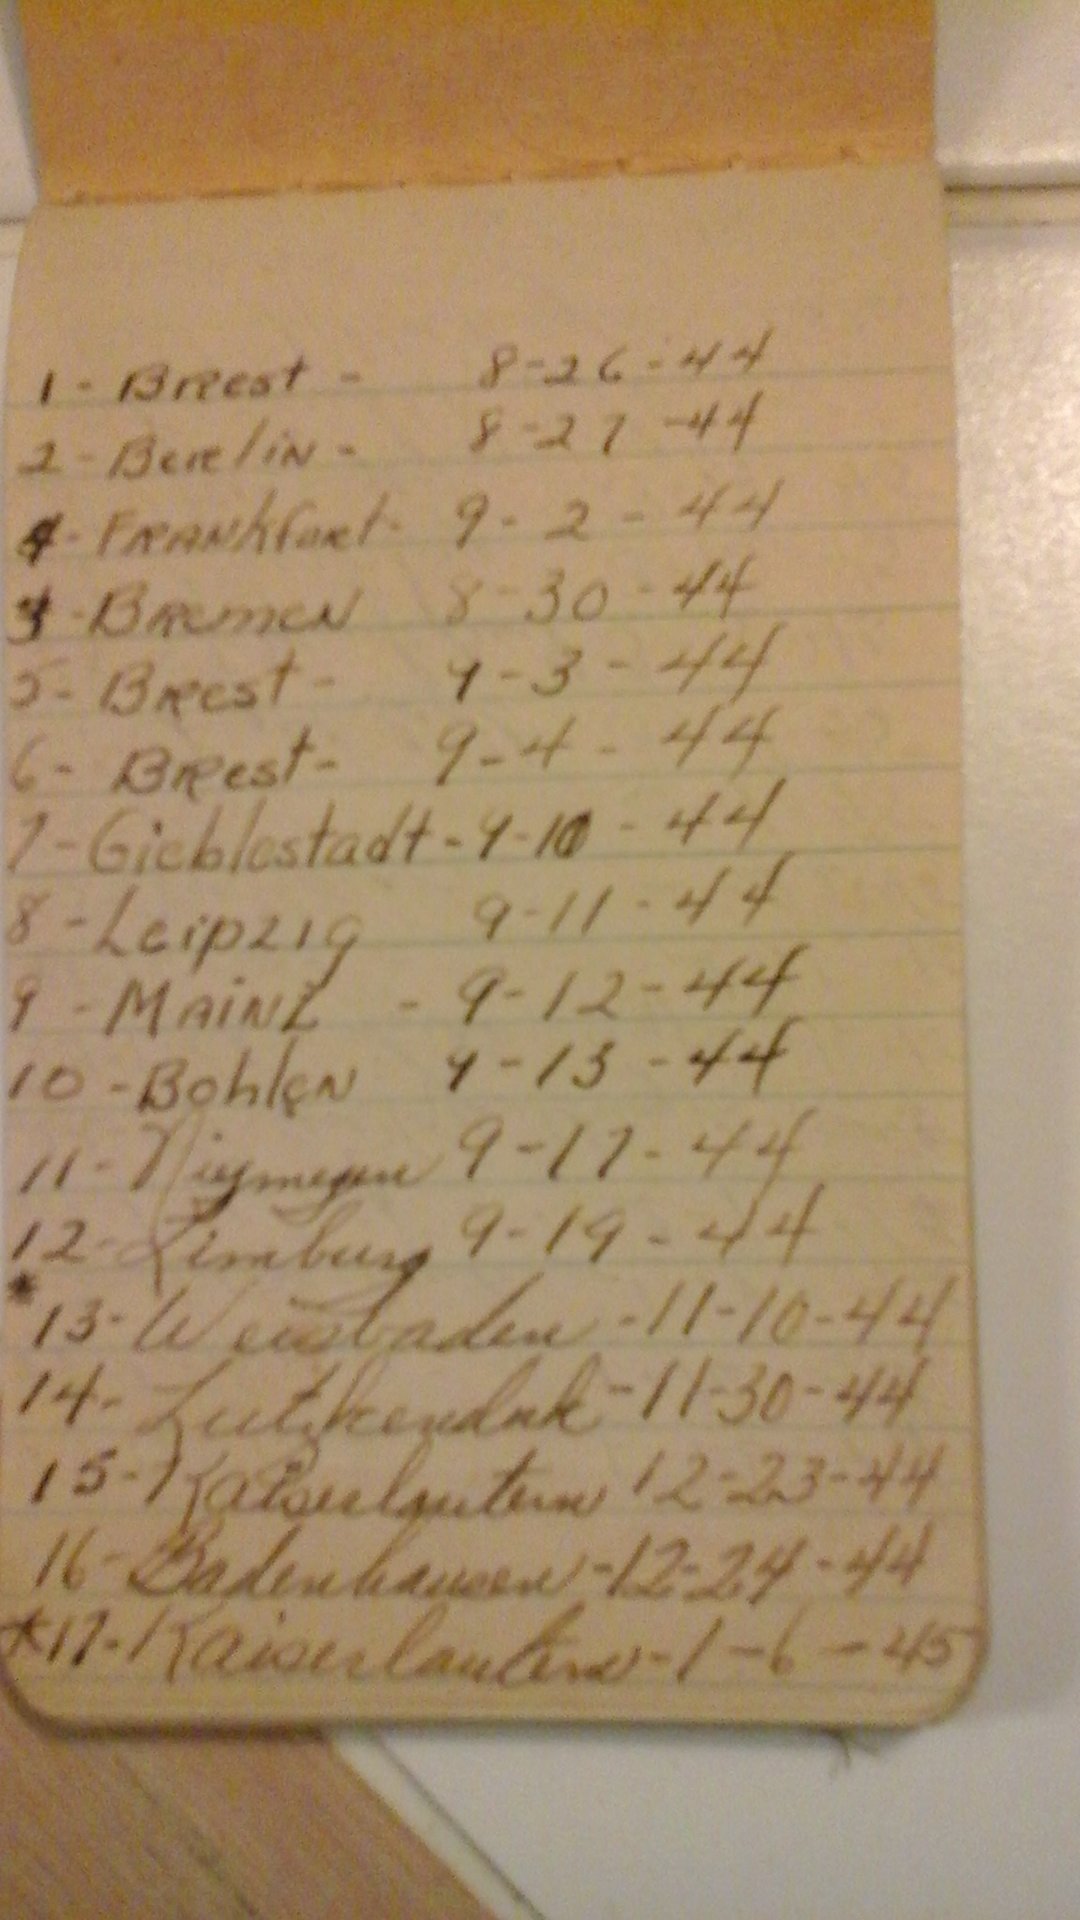 1 - Brest - 8-26-44
2 - Berlin - 8-27-44
4 - Frankfort - 9-2-44
3 - Bremen 8-30-44
5 - Brest - 9-3-44
6 - Brest - 9-4-44
7 - Gieblestadt - 9-10-44
8 - Leipzig 9-11-44
9 - Mainz - 9-12-44
10 - Bohlen 9-13-44
11 - Niegmegen 9-17-44
12 - Limburg 9-19-44
* 13 - Weisbaden - 11-10-44
14 - Lutzkenduk - 11-30-44
15 - Kaiserlautern 12-23-44
16 - Badenhausen - 12-24-44
* 17 - Kaiserlautern - 1-6-45